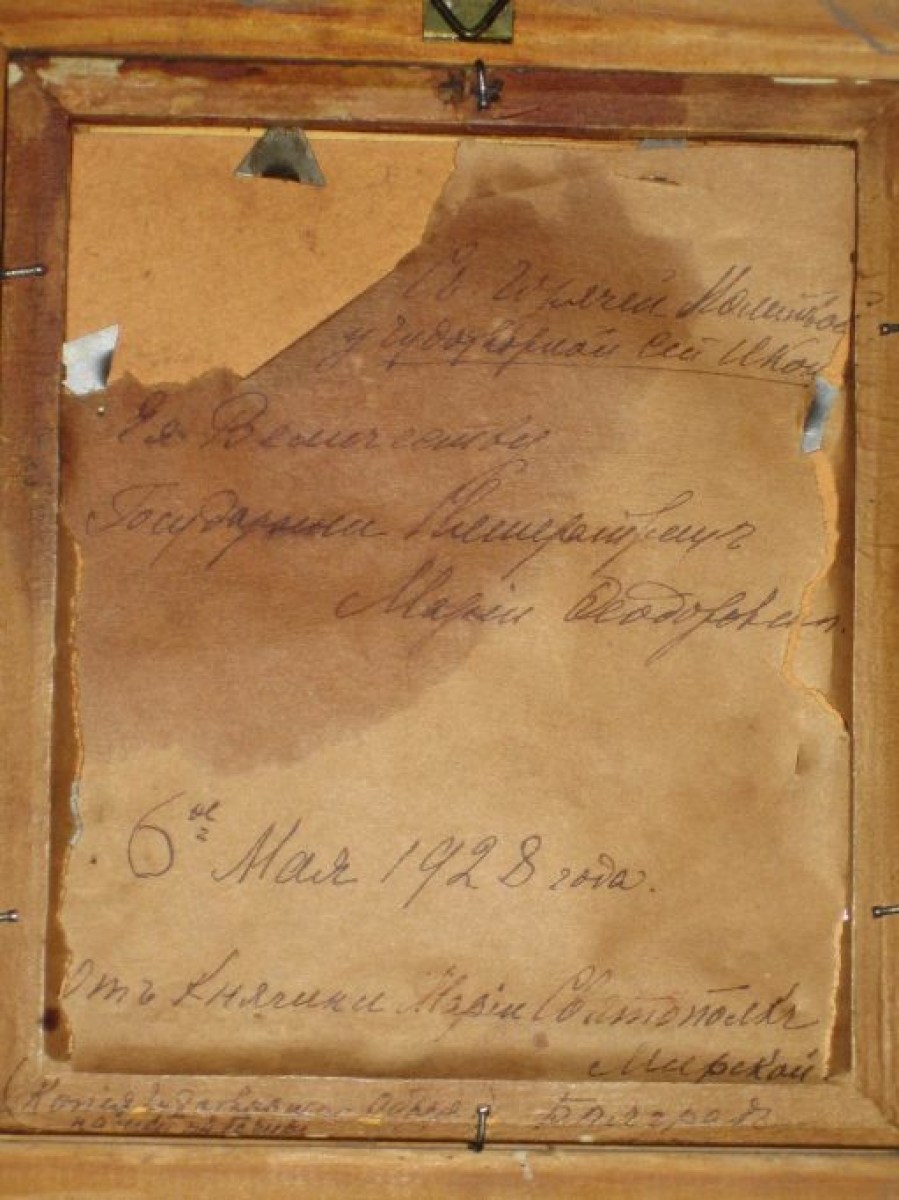 Съ горячей Молитвой
у Чудотворной сей Икон
Ея Величеству
Государыни Императрицѣ
Маріи Ѳеодоровнѣ.
6го Мая 1928 года.
Отъ Княжны Маріи Святополкъ
Мирской.
(Копія